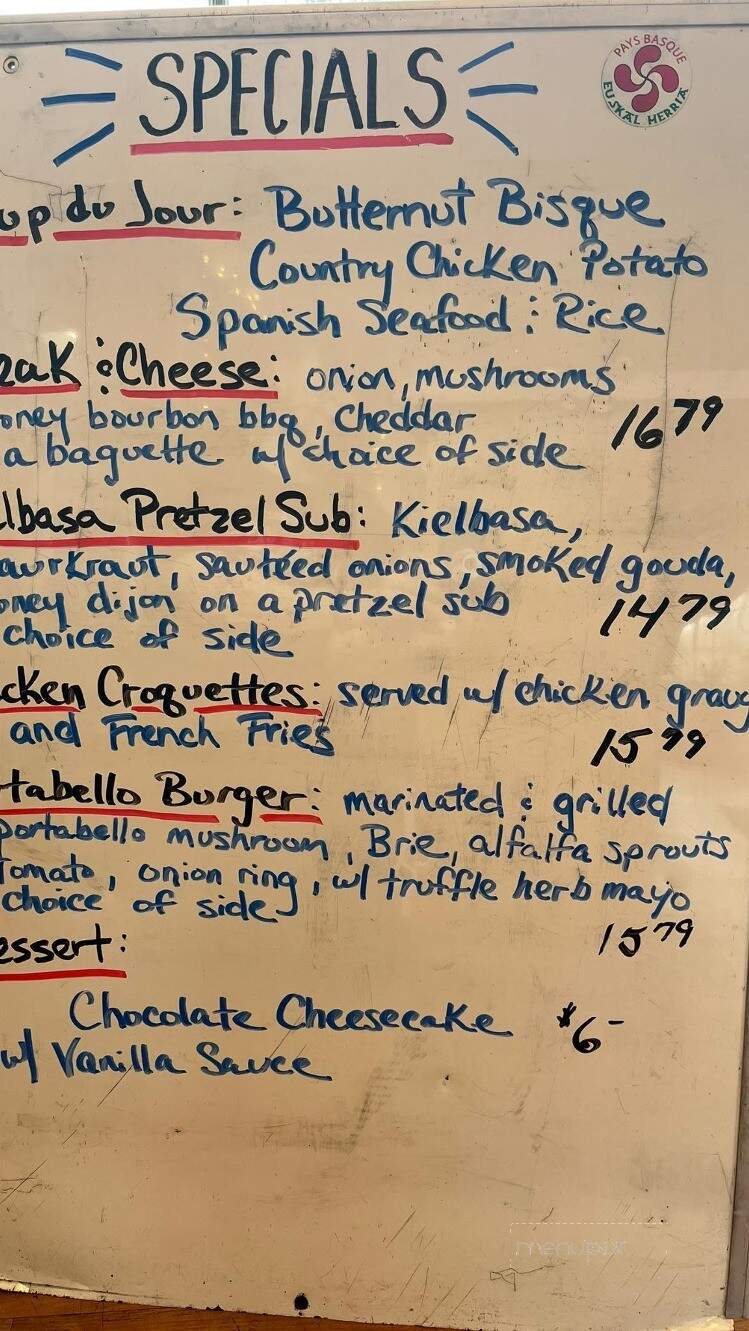 SPECIALS
PAYS BASQUE
EUSKAL HERRIA
up du Jour: Butternut Bisque
Country Chicken Potato
Spanish Seafood & Rice
eak & Cheese: onion, mushrooms
oney bourbon bbq, Cheddar
a baguette w/ choice of side 16 79
lbasa Pretzel Sub: Kielbasa,
aurkraut, sautéed onions, smoked gouda,
oney dijon on a pretzel sub 14 79
choice of side
cken Croquettes: served w/ chicken gravy
and French Fries 15 99
tabello Burger: marinated & grilled
portabello mushroom, Brie, alfalfa sprouts
Tomato, onion ring, w/ truffle herb mayo
choice of side 15 79
essert:
Chocolate Cheesecake $6-
w/ Vanilla Sauce
menupix